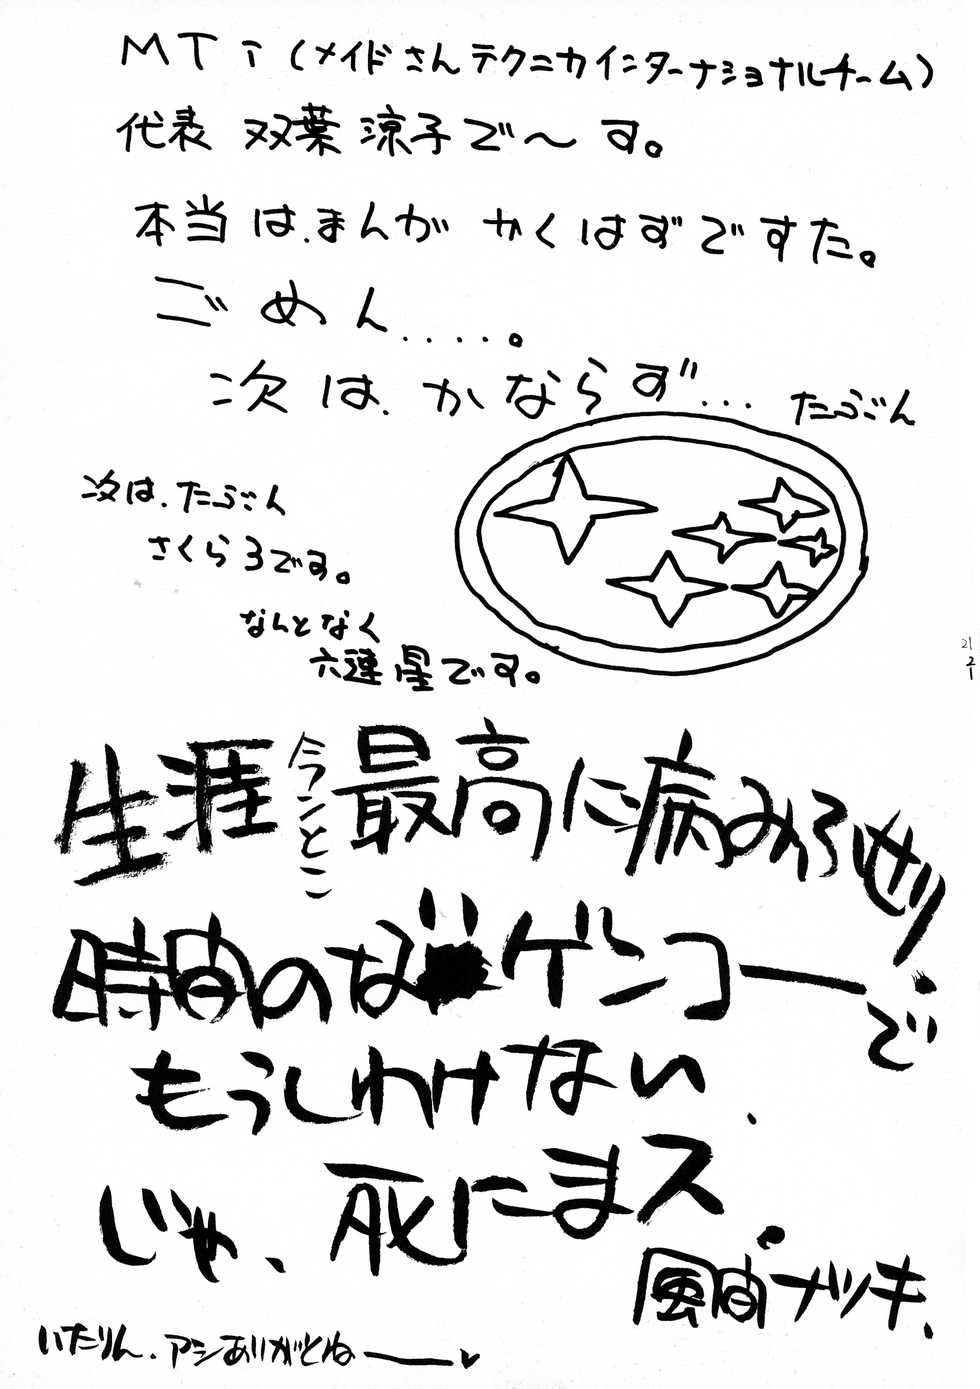 MTi(メイドさんテクニカインターナショナルチーム)
代表 双葉 涼子で〜す。
本当は、まんが かくはずですた。
ごめん....。
次は、かならず...たぶん
次は、たぶん
さくら3です。
なんとなく
六連星です。
生涯今んとこ最高に病みんろせり
時間のな ゲンコーで
もうしわけない、
じゃ、死にまス。
風間ナツキ、
いたりん、アシありがとね
21
21